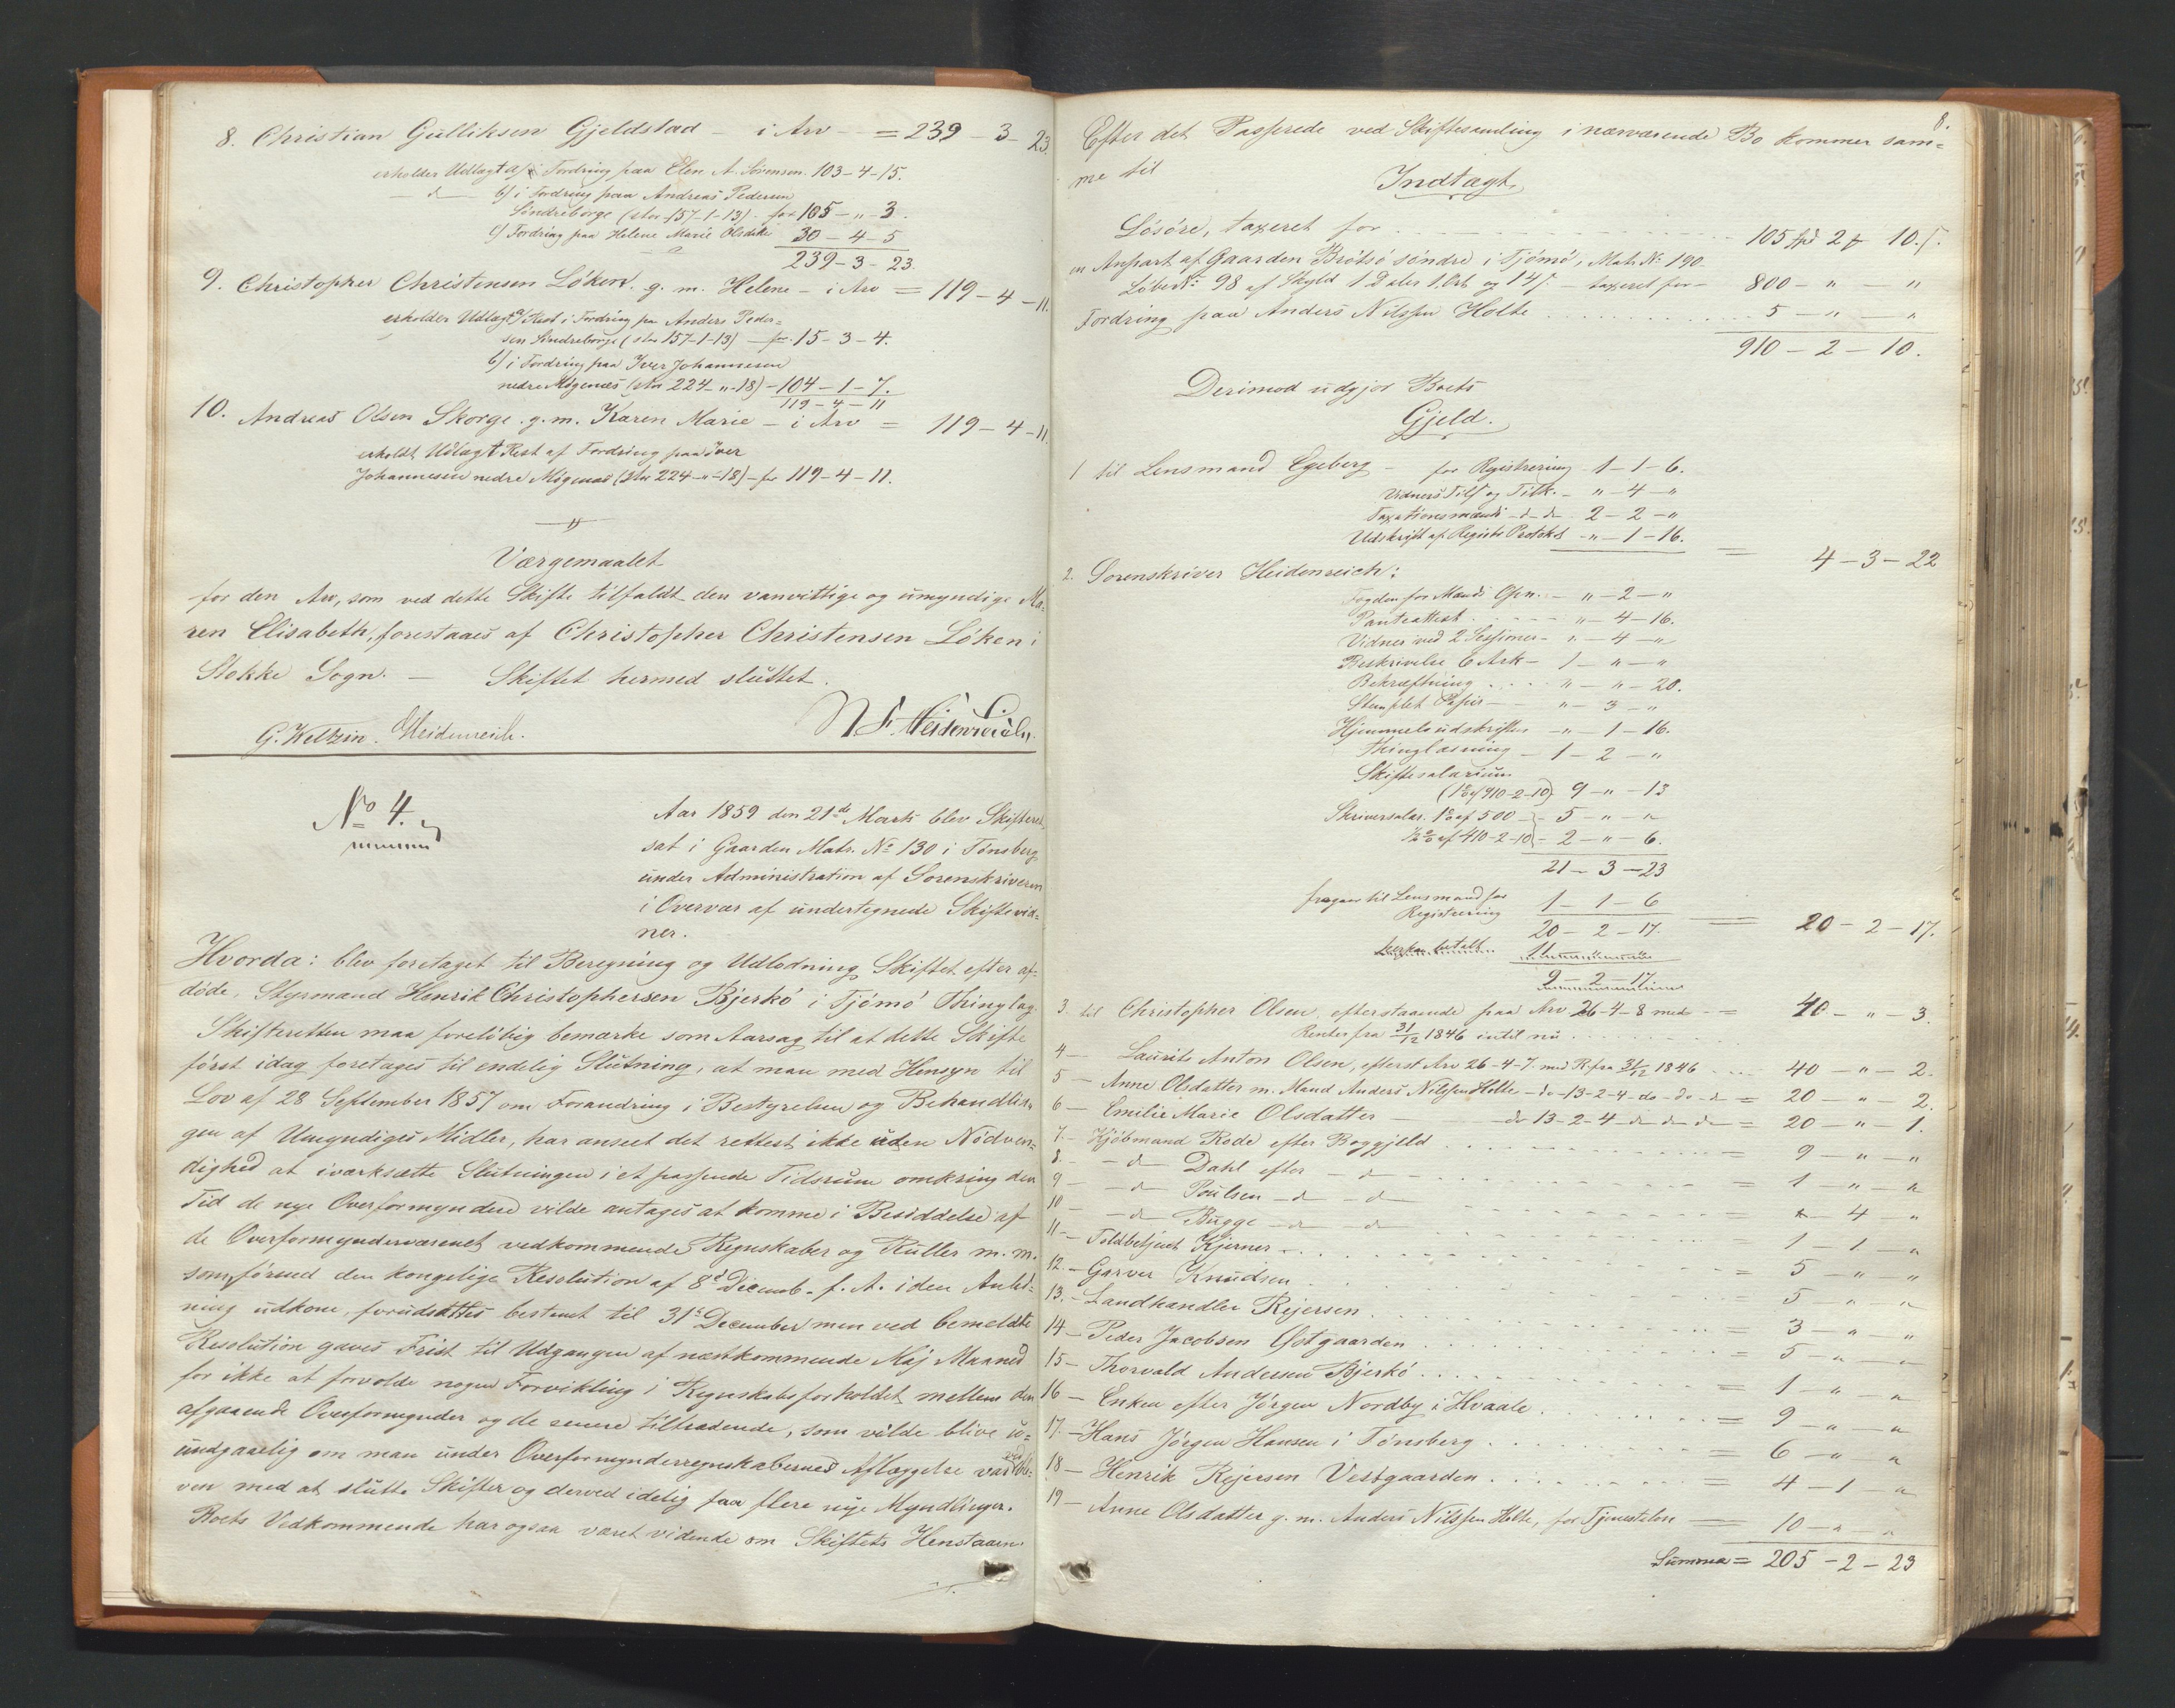 8. Christian Gulliksen Gjeldstad - i Arv - = 239 - 3 - 23.
erholder Udlagt a) i Fordring paa Elen A. Sörensen 103-4-15.
- d - b) i Fordring paa Andreas Pedersen
Söndreborge (stor 157-1-13) - for 105 - " - 3.
c) Fordring paa Helene Marie Olsdatter 30 - 4 - 5
239 - 3 - 23.
9. Christopher Christensen Löken g. m. Helene - i Arv = 119 - 4 - 11.
erholder Udlagt a) Rest i Fordring pa Anders Peder=
sen Söndreborge (stor 157-1-13) - for 15 - 3 - 4.
b) i Fordring paa Iver Johannesen
nedre Mögenæs (stor 224 - " - 18) - 104 - 1 - 7.
119 - 4 - 11
10. Andreas Olsen Skorge g. m. Karen Marie - i Arv = 119 - 4 - 11.
erholdt Udlagt Rest af Fordring paa Iver
Johannesen nedre Mögenæs (stor 224 - " - 18) - for 119 - 4 - 11.
Værgemaalet
for den Arv, som ved dette Skifte tilfaldt den vanvittige og umyndige Ma=
ren Elisabeth, forestaaes af Christopher Christensen Löken i
Stokke Sogn. - Skiftet hermed sluttet.
G. Keltzin. Heidenreich. N. F. Heidenreich.
No 4.
Aar 1859 den 21de Marts blev Skifteret
sat i Gaarden Matr. No 130 i Tönsberg
under Administration af Sorenskriveren
i Overvær af undertegnede Skiftevid=
ner.
Hvorda: blev foretaget til Beregning og Udlodning Skiftet efter af=
döde, Styrmand Henrik Christophersen Bjerkö i Tjömö Thinglag.
Skifteretten maa forelöbig bemærke som Aarsag til at dette Skifte
först idag foretages til endelig Slutning, at man med Hensyn til
Lov af 28 September 1857 om Forandring i Bestyrelsen og Behandlin=
gen af Umyndiges Midler, har anseet det rettest ikke uden Nödven=
dighed at iværksætte Slutningen i et passende Tidsrum omkring den
Tid de nye Overformyndere vilde antages at komme i Besiddelse af
de Overformynderværenet vedkommende Regnskaber og Ruller m. m.
som, förend den kongelige Resolution af 8d Decemb. f. A. i den Anled=
ning udkom, forudsattes bestemt til 31te December men ved bemeldte
Resolution gaves Frist til Udgangen af næstkommende Maj Maaned
for ikke at forvolde nogen Forvikling i Regnskabsforholdet mellem den
afgaaende Overformynder og de senere tiltrædende, som vilde blive u=
undgaaelig om man under Overformynderregnskabernes Aflæggelse var ved ble=
ven med at slutte Skifter og derved idelig faa flere nye Myndlinger.
Boets Vedkommende har ogsaa været vidende om Skiftets Henstaaen.
8.
Efter det Passerede ved Skiftesamling i nærværende Bo kommer sam=
me til
Indtægt,
Lösöre, taxeret for 105 Spd 2 # 10 s.
en Anpart af Gaarden Brötsö söndre i Tjömö, Matr. No 190
Löbe No 98 af Skyld 1 Daler 1 Ort og 14 s. - taxeret for - 800 - " - "
Fordring paa Anders Nilssen Holte 5 - " - "
910 - 2 - 10.
Derimod udgjör Boets
Gjeld.
1 til Lensmand Egeberg - for Registrering 1 - 1 - 6.
Vidners Tils. og Tilk. - " - 4 - "
Taxationsmænds - d - d - 2 - 2 - "
Udskrift af Registr. Protokol - " - 1 - 16.
= 4 - 3 - 22
2. Sorenskriver Heidenreich:
Fogden for Mænds Opn. - " - 2 - "
Panteattest " - 4 - 16.
Vidner ved 2 Sessioner - " - 4 - "
Beskrivelse 6 Ark - 1 - " - "
Bekræftning " - " - 20.
Stemplet Papir - " - 3 - "
Hjemmelsudskrifter - " - 1 - 16.
Thinglæsning - 1 - 2 - "
Skiftesalarium
(1% af 910-2-10) 9 - " - 13
Skriversalar. 1% af 500 - 5 - " - "
½% af 410-2-10 - 2 - " - 6.
21 - 3 - 23
fragaaer til Lensmand for
Registrering 1 - 1 - 6
20 - 2 - 17 = 20 - 2 - 17.
herpaa betalt 11 " "
9 - 2 - 17
3. til Christopher Olsen, efterstaaende paa Arv 26-4-8 med = 40 - " - 3.
Renter fra 31/12 1846 indtil nu
4 - Laurits Anton Olsen, efterst. Arv 26-4-7. med R. fra 31/12 1846 40 - " - 2.
5 - Anne Olsdatter m. Mand Anders Nilssen Holte - do - 13-2-4 - do - do - d = 20 - " - 2.
6 - Emilie Marie Olsdatter - do 13-2-4 - do do do = 20 - " - 1.
7. - Kjöbmand Rode efter Boggjeld = 9 - " - "
8. - d - Dahl efter - d - = 1 - " - "
9 - d - Poulsen - d - d = " - 4 - "
10 - d - Bugge - d - d 1 - 1 - "
11 - Toldbetjent Kjerner = 5 - " - "
12. - Garver Knudsen = 5 - " - "
13. - Landhandler Rejersen 3 - " - "
14 - Peder Jacobsen Østgaarden = 5 - " - "
15 - Thorvald Andersen Bjerkö = 1 - " - "
16 - Enken efter Jörgen Nordby i Hvaale = 9 - " - "
17. - Hans Jörgen Hansen i Tönsberg = 6 - " - "
18 - Henrik Rejersen Vestgaarden = 4 - 1 - "
19 - Anne Olsdatter g. m. Anders Nilssen Holte, for Tjenestelön 10 - " - "
Summa = 205 - 2 - 23